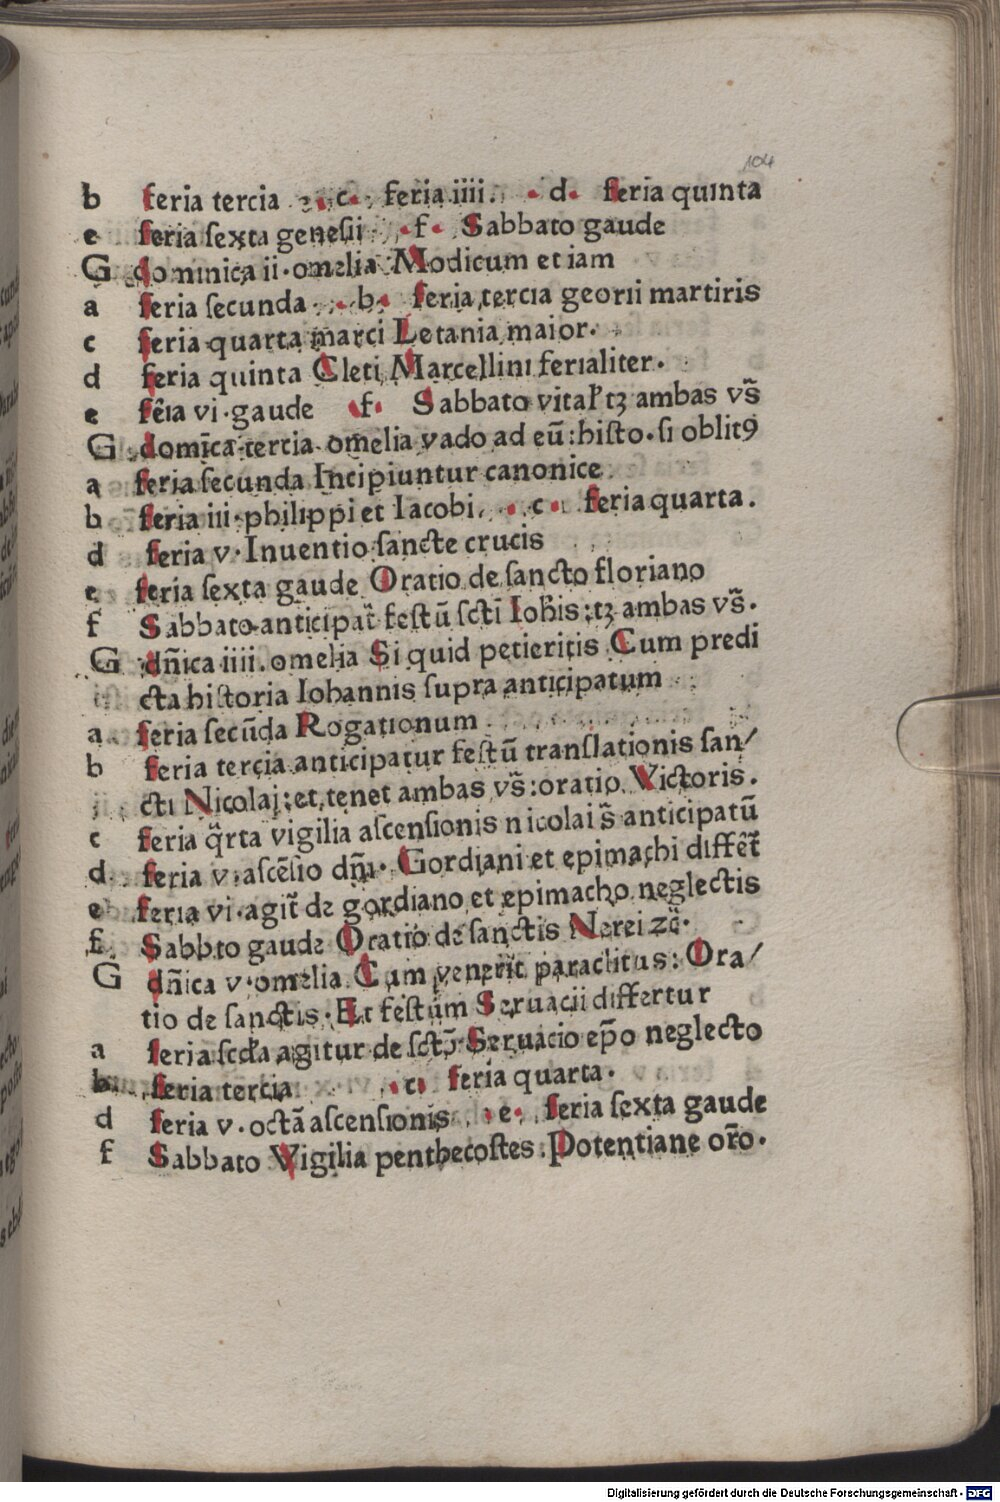 104
b feria tercia · c · feria iiii. · d · feria quinta
e feria sexta genesii · f · Sabbato gaude
G dominica ii · omelia Modicum et iam
a feria secunda · b · feria tercia georii martiris
c feria quarta marci Letania maior.
d feria quinta Cleti Marcellini ferialiter.
e fẽia vi · gaude · f · Sabbato vital' tꝫ ambas vs̃
G domīca tercia omelia vado ad eū : histo . si oblitꝰ
a feria secunda Incipiuntur canonice
b feria iii · philippi et Iacobi. · c · feria quarta.
d feria v · Inuentio sancte crucis
e feria sexta gaude Oratio de sancto floriano
f Sabbato anticipat̃ festū sctī Ioh̃is : tꝫ ambas vs̃.
G dñica iiii . omelia Si quid petieritis Cum predi
cta historia Iohannis supra anticipatum
a feria secūda Rogationum
b feria tercia anticipatur festū translationis san/
cti Nicolai : et tenet ambas vs̃ : oratio Victoris.
c feria q̃rta vigilia ascensionis nicolai s̃ anticipatū
d feria v · ascēsio dñi · Gordiani et epimachi differ̃t
e feria vi · agit̃ de gordiano et epimacho neglectis
f Sabbto gaude Oratio de sanctis Nerei zc̃.
G dñica v · omelia Cum venerit paraclitus : Ora/
tio de sanctis · Et festum Seruacii differtur
a feria scd̃a agitur de sctõ Seruacio ep̃o neglecto
b feria tercia · c · feria quarta.
d feria v · octā ascensionis · e · feria sexta gaude
f Sabbato Vigilia penthecostes : Potentiane or̃o.
Digitalisierung gefördert durch die Deutsche Forschungsgemeinschaft - DFG